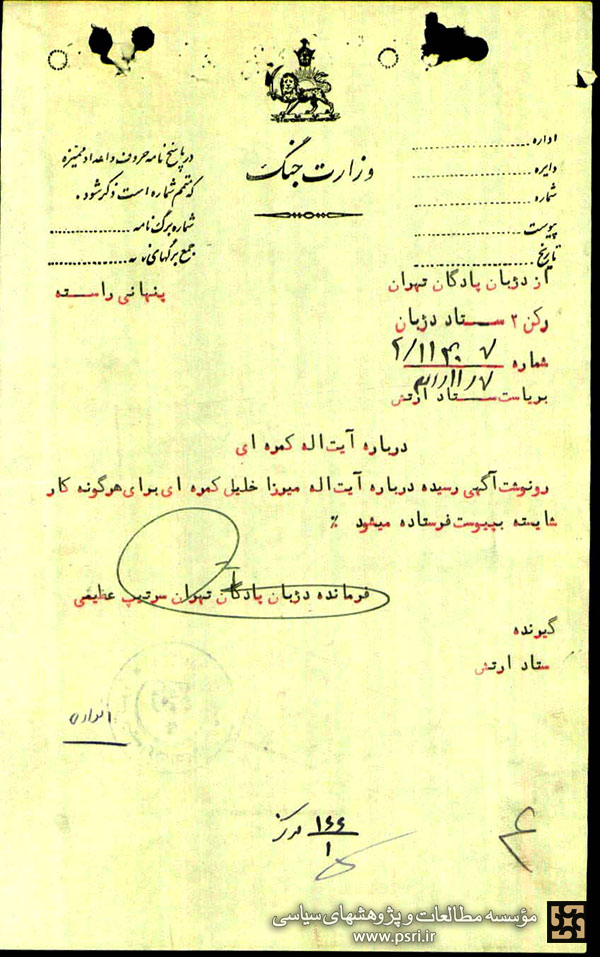 وزارت جنگ
اداره
دایره
شماره
پیوست
تاریخ
در پاسخ نامه حروف و اعداد ممیزه
که متمم شماره است ذکر شود.
شماره برگ نامه
جمع برگهای نامه
از دژبان پادگان تهران
پنهانی راسته
رکن ۲ ستاد دژبان
شماره
بریاست ستاد ارتش
درباره آیت اله کمره ای
رونوشت آگهی رسیده درباره آیت اله میرزا خلیل کمره ای برای هرگونه کار
شایسته بپیوست فرستاده میشود ٪
فرمانده دژبان پادگان تهران سرتیپ عظیمی
گیرنده
ستاد ارتش
۱۶۶
۱
مؤسسه مطالعات و پژوهشهای سیاسی
www.psri.ir